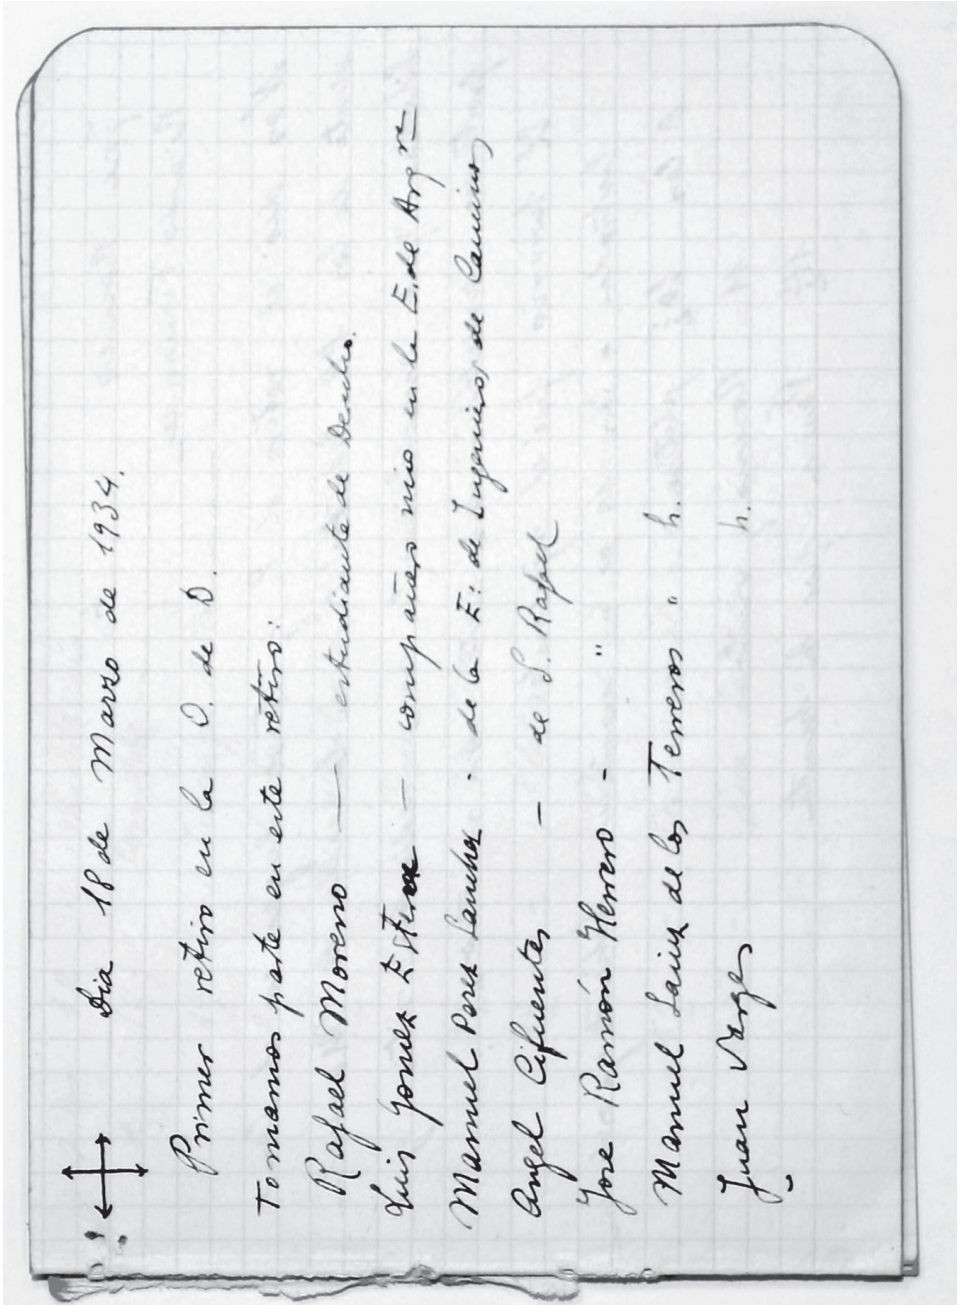 Dia 18 de Marzo de 1934.
Primer retiro en la O. de D.
Tomamos parte en este retiro:
Rafael Moreno — estudiante de Derecho.
Luis Gomez Esteve — compañero mio en la E. de Arqra
Manuel Perez Sanchez - de la E. de Ingenieros de Caminos
Angel Cifuentes — de S. Rafael
Jose Ramón Herrero - "
Manuel Sainz de los Terreros " h.
Juan Vargas h.